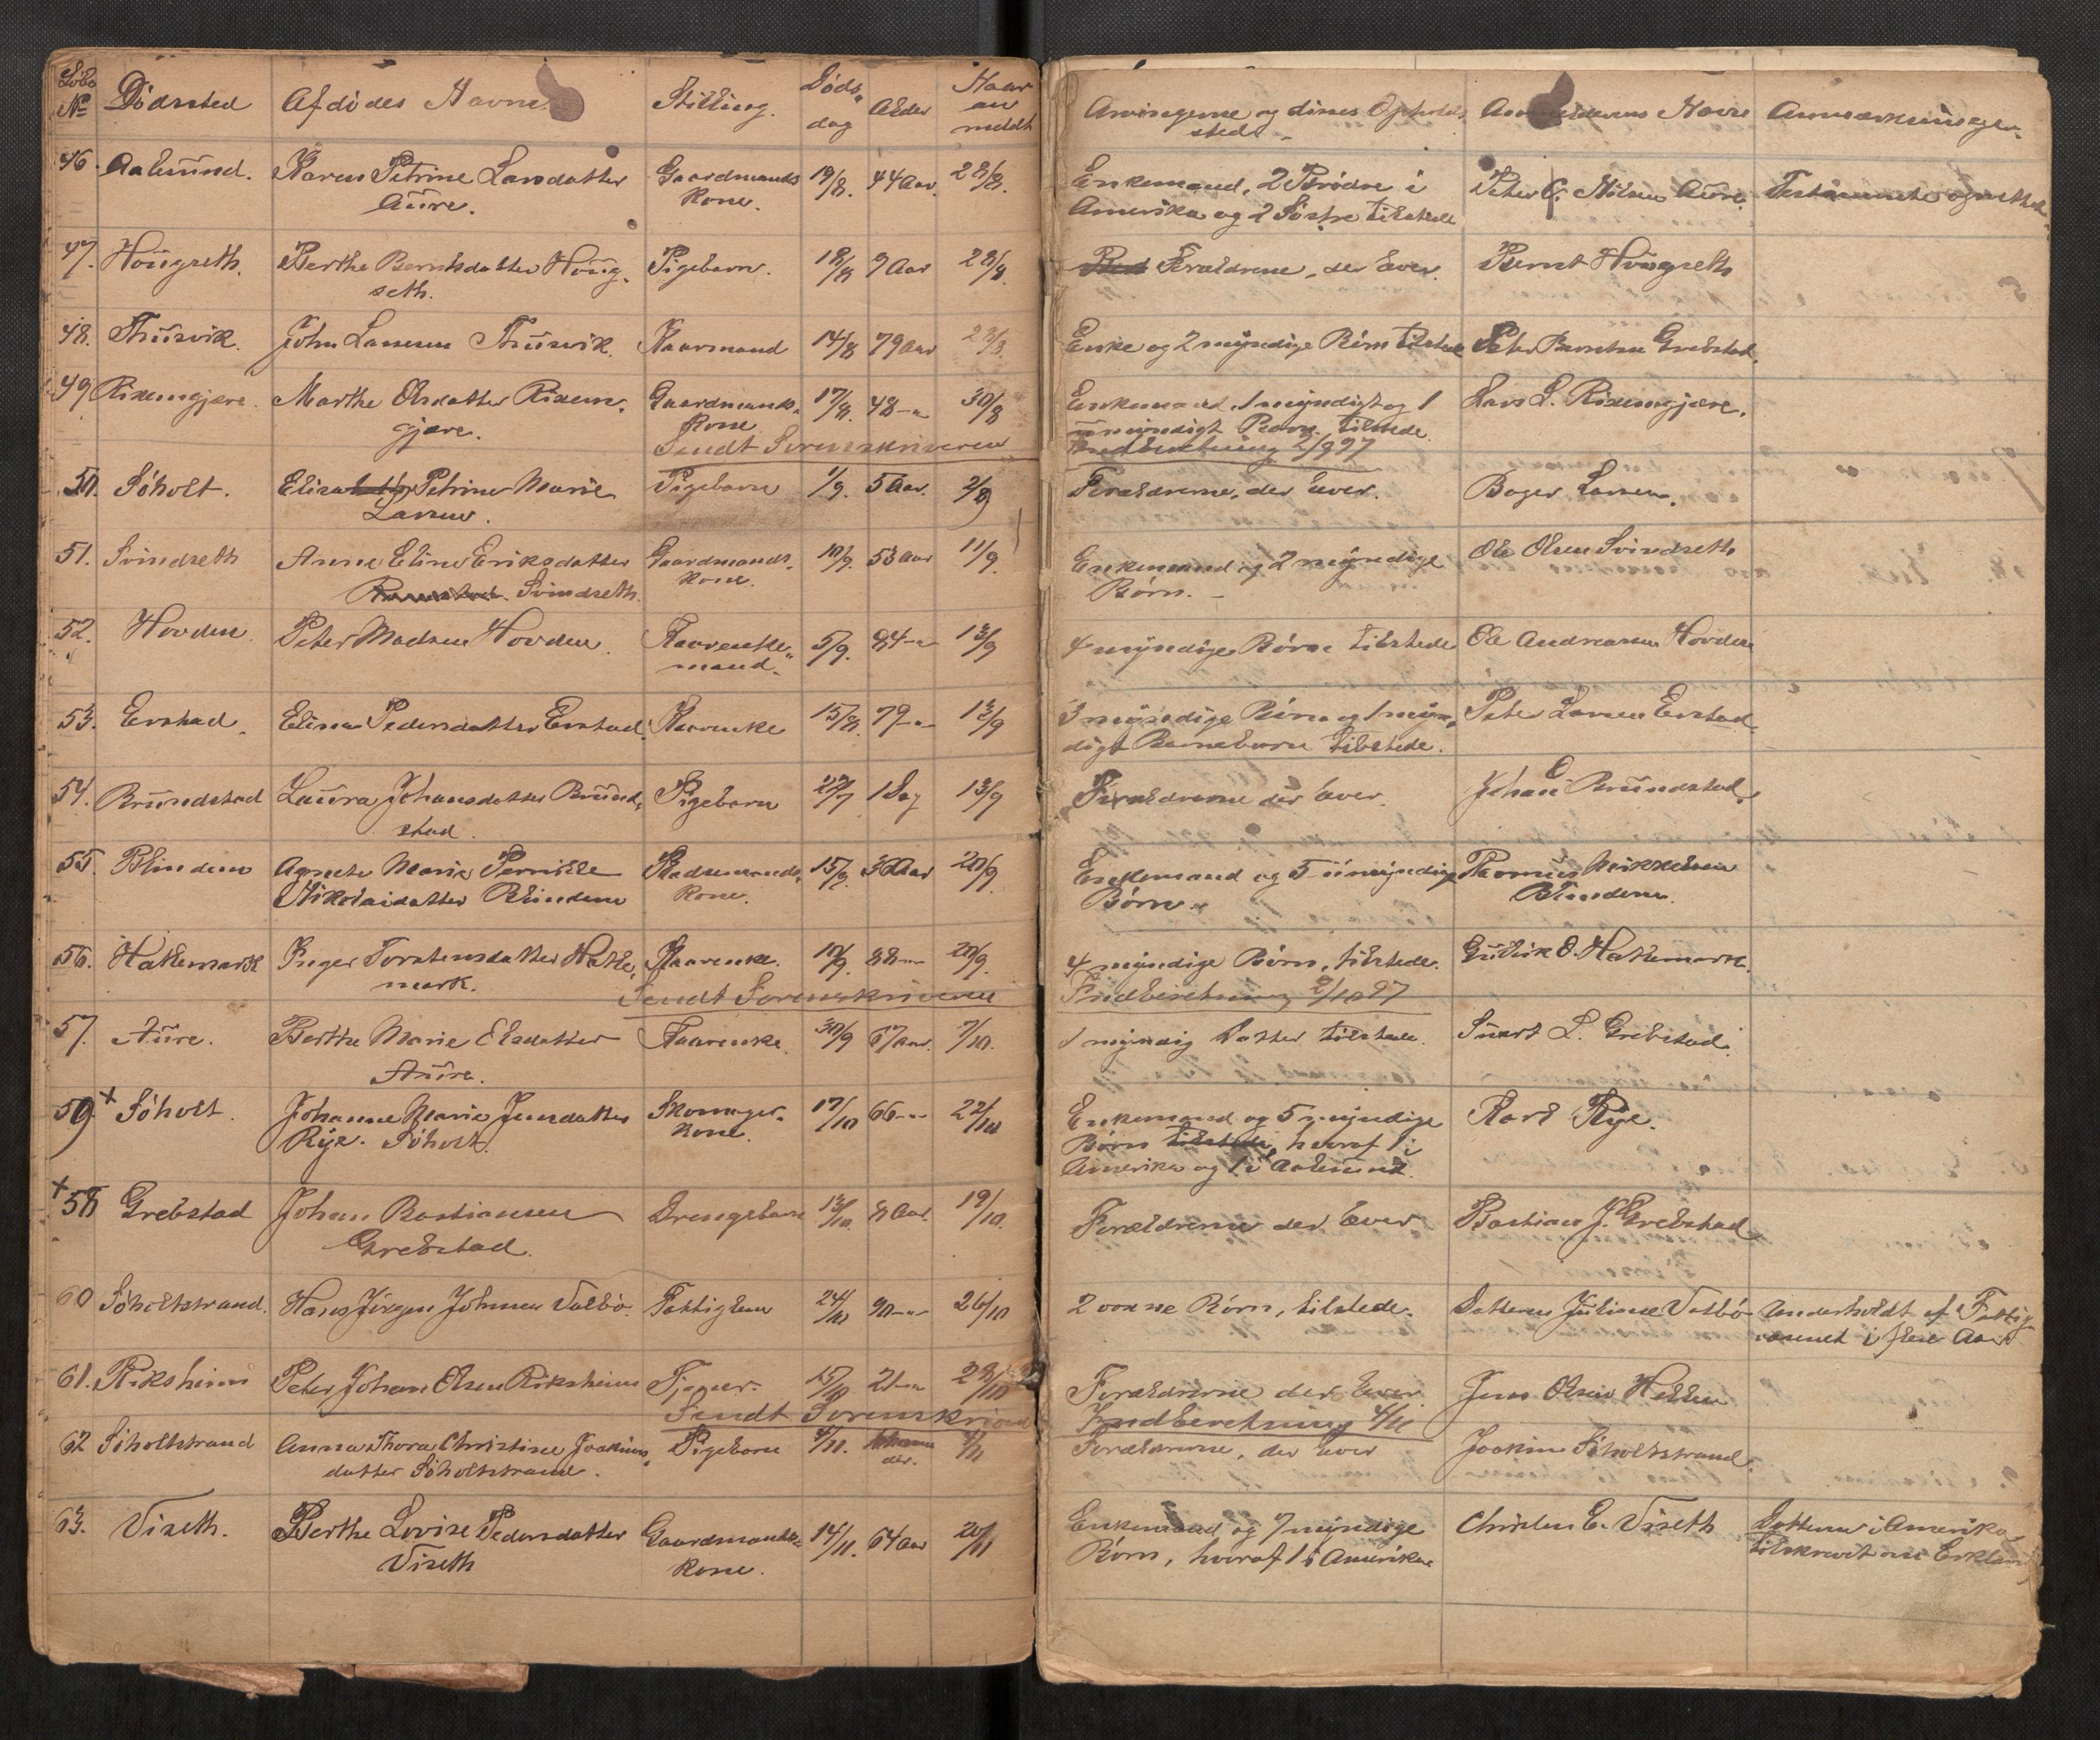 Løbe No Dødssted Afdødes Navne Stilling. Døds-dag Alder Naar anmeldt Arvingerne og disses Opholdssted Anmelderens Navn Anmærkninger
46. Aalesund. Karen Petrine Larsdatter Gaardmands 19/8. 44 Aar. 23/8. Enkemand, 2 Brødre i Peter C. Nilsen Aure. Testamente oprettet
Aure. Kone. Amerika og 2 Søstre tilstede
47. Hougseth. Berthe Berntsdatter Houg- Pigebarn. 18/8 9 Aar 23/8. Forældrene, der lever. Bernt Hougseth
seth.
48. Thusvik. John Larsen Thusvik. Kaarmand 14/8 79 Aar 23/8. Enke og 2 myndige Børn tilstede Peter Berntsen Grebstad.
49 Rixemgjære. Marthe Olsdatter Rixem- Gaardmands- 17/8. 48 -"- 30/8 Enkemand, 1 myndigt og 1 Lars L. Rixemgjære.
gjære. Kone umyndigt Barn tilstede.
Sendt Sorenskriveren Indberetning 2/9 97
50. Søholt. Elisabeth Petrine Marie Pigebarn 1/9. 5 Aar. 2/9 Forældrene, der lever. Larsen.
Larsen.
51. Svindseth Anne Eline Eriksdatter Gaardmands- 10/9. 53 Aar 11/9. Enkemand og 2 myndige Ole Olsen Svindseth
Svindseth. kone. Børn. -
52. Hovden. Peter Madsen Hovden. Kaarenke- 5/9. 84 -"- 13/9 4 myndige Børn tilstede Ole Andreassen Hovden
mand.
53. Erstad. Eline Pedersdatter Erstad. Kaarenke 15/8. 79 -"- 13/9 3 myndige Børn og 1 myn- Peter Larsen Erstad
digt Barnebarn tilstede.
54. Brundstad Laura Johansdatter Brund- Pigebarn 22/7 1 Dag 13/9 Forældrene der lever. Johan Brundstad.
stad.
55. Blindem Agnete Marie Pernille Pladsemands- 15/9. 36 Aar 20/9. Enkemand og 5 umyndige Rasmus Mikkelsen
Nikolaidatter Blindem Kone. Børn. Blindem.
56. Haklemark Inger Torstensdatter Hakle- Kaarenke. 10/9. 88 -"- 20/9. 4 myndige Børn, tilstede. Gullik O. Haklemark.
mark. Sendt Sorenskriveren Indberetning 2/10 97
57. Aure. Berthe Marie Elsdatter Kaarenke. 30/9 67 Aar. 7/10. 1 myndig Datter tilstede. L. Grebstad.
Aure.
59. + Søholt. Johanne Marie Jensdatter Skomager- 17/10 66 -"- 22/10 Enkemand og 5 myndige Karl Rye.
Rye. Søholt. Kone. Børn tilstede, hvoraf 1 i
Amerika og 1 i Aalesund.
+ 58 Grebstad Johan Bastiansen Drengebarn 13/10. 8 Aar. 19/10. Forældrene der lever Bastian J. Grebstad
Grebstad.
60 Søholtstrand. Hans Jørgen Johnsen Valbø. Fattiglem 24/10 90 -"- 26/10 2 voxne Børn, tilstede. Datteren Juline Valbø Underholdt af Fattig-
væsenet i flere Aar
61. Riksheim Peter Johan Olsen Riksheim Tjener. 15/10 21 -"- 28/10 Forældrerne der lever Jens Olsen
Sendt Sorenskriveren Indberetning 4/11
62 Søholtstrand Anna Thora Christine Joakims- Pigebarn 4/11. Forældrerne, der lever Joakim Søholtstrand.
datter Søholtstrand.
63. Viseth. Berthe Lovise Pedersdatter Gaardmands- 14/11. 64 Aar 20/11 Enkemand og 7 myndige Christen E. Viseth Datteren i Amerika
Viseth Kone. Børn, hvoraf 1 i Amerika